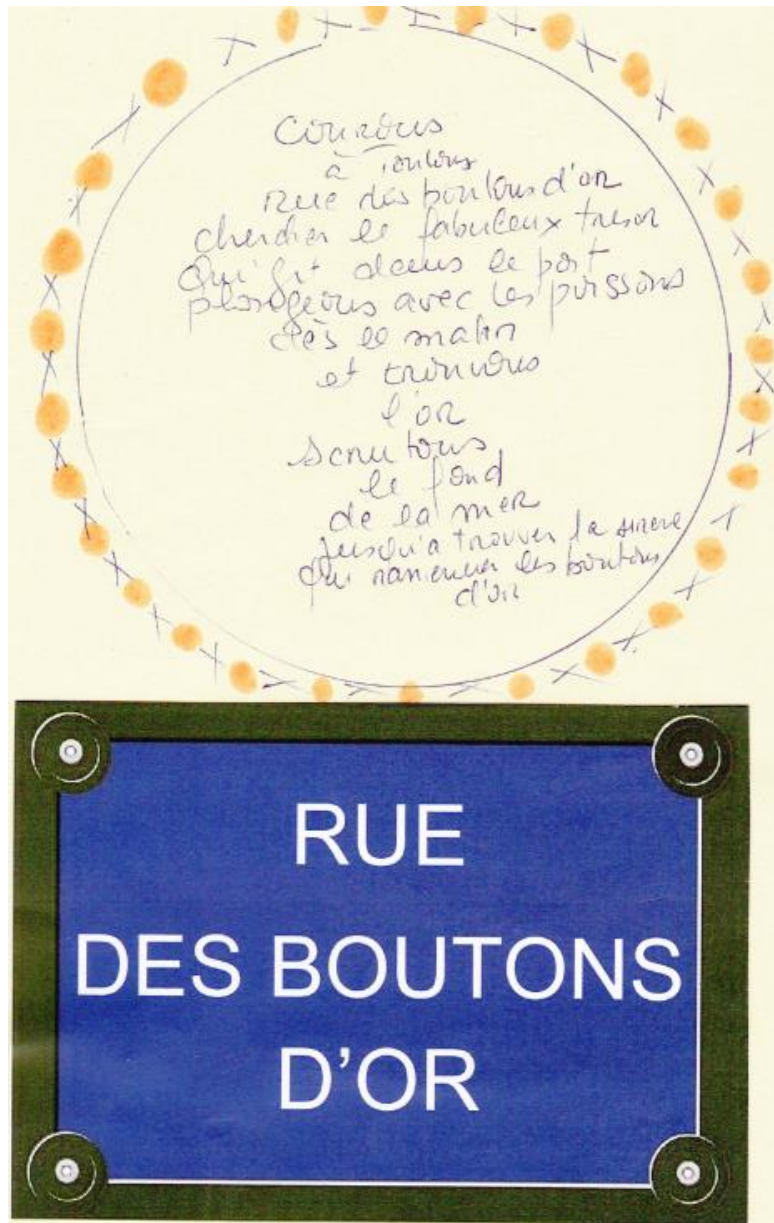 Courons
à Toulon
rue des boutons d'or
chercher le fabuleux tresor
qui gît dans le port
plongeons avec les poissons
dès le matin
et trouvons
l'or
scrutons
le fond
de la mer
jusqu'a trouver la sirene
qui les boutons
d'or
RUE
DES BOUTONS
D'OR